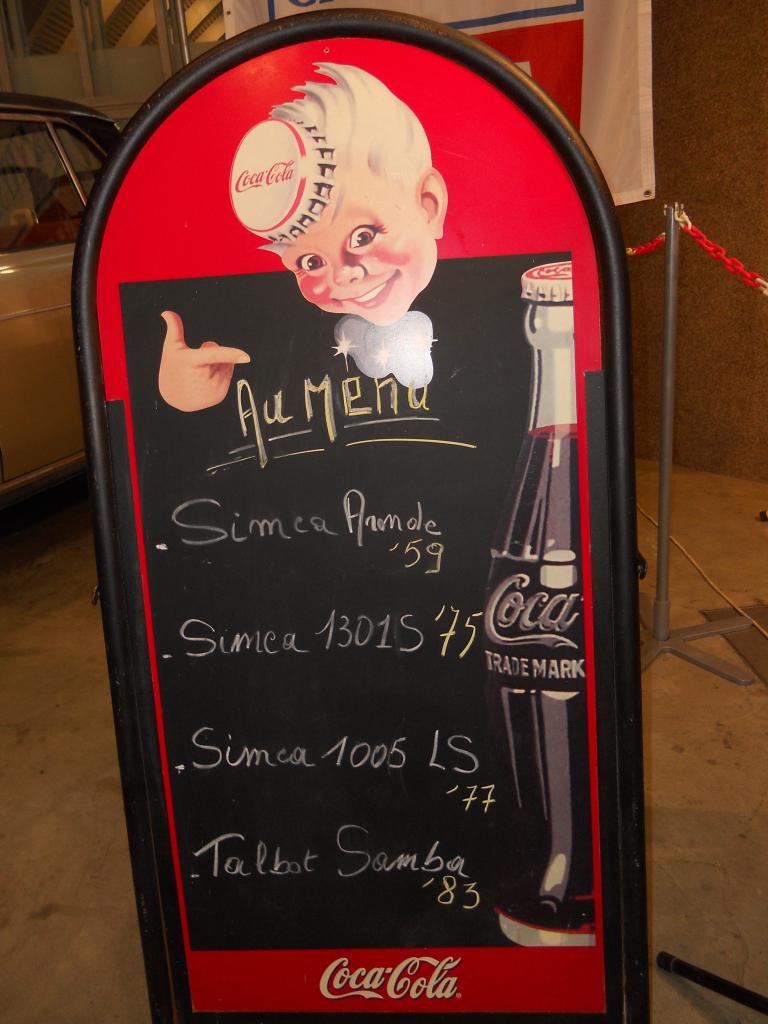 Coca-Cola
Au Menu
. Simca Aronde
'59
. Simca 1301S '75
. Simca 1005 LS
'77
. Talbot Samba
'83
Coca
TRADE MARK
Coca-Cola